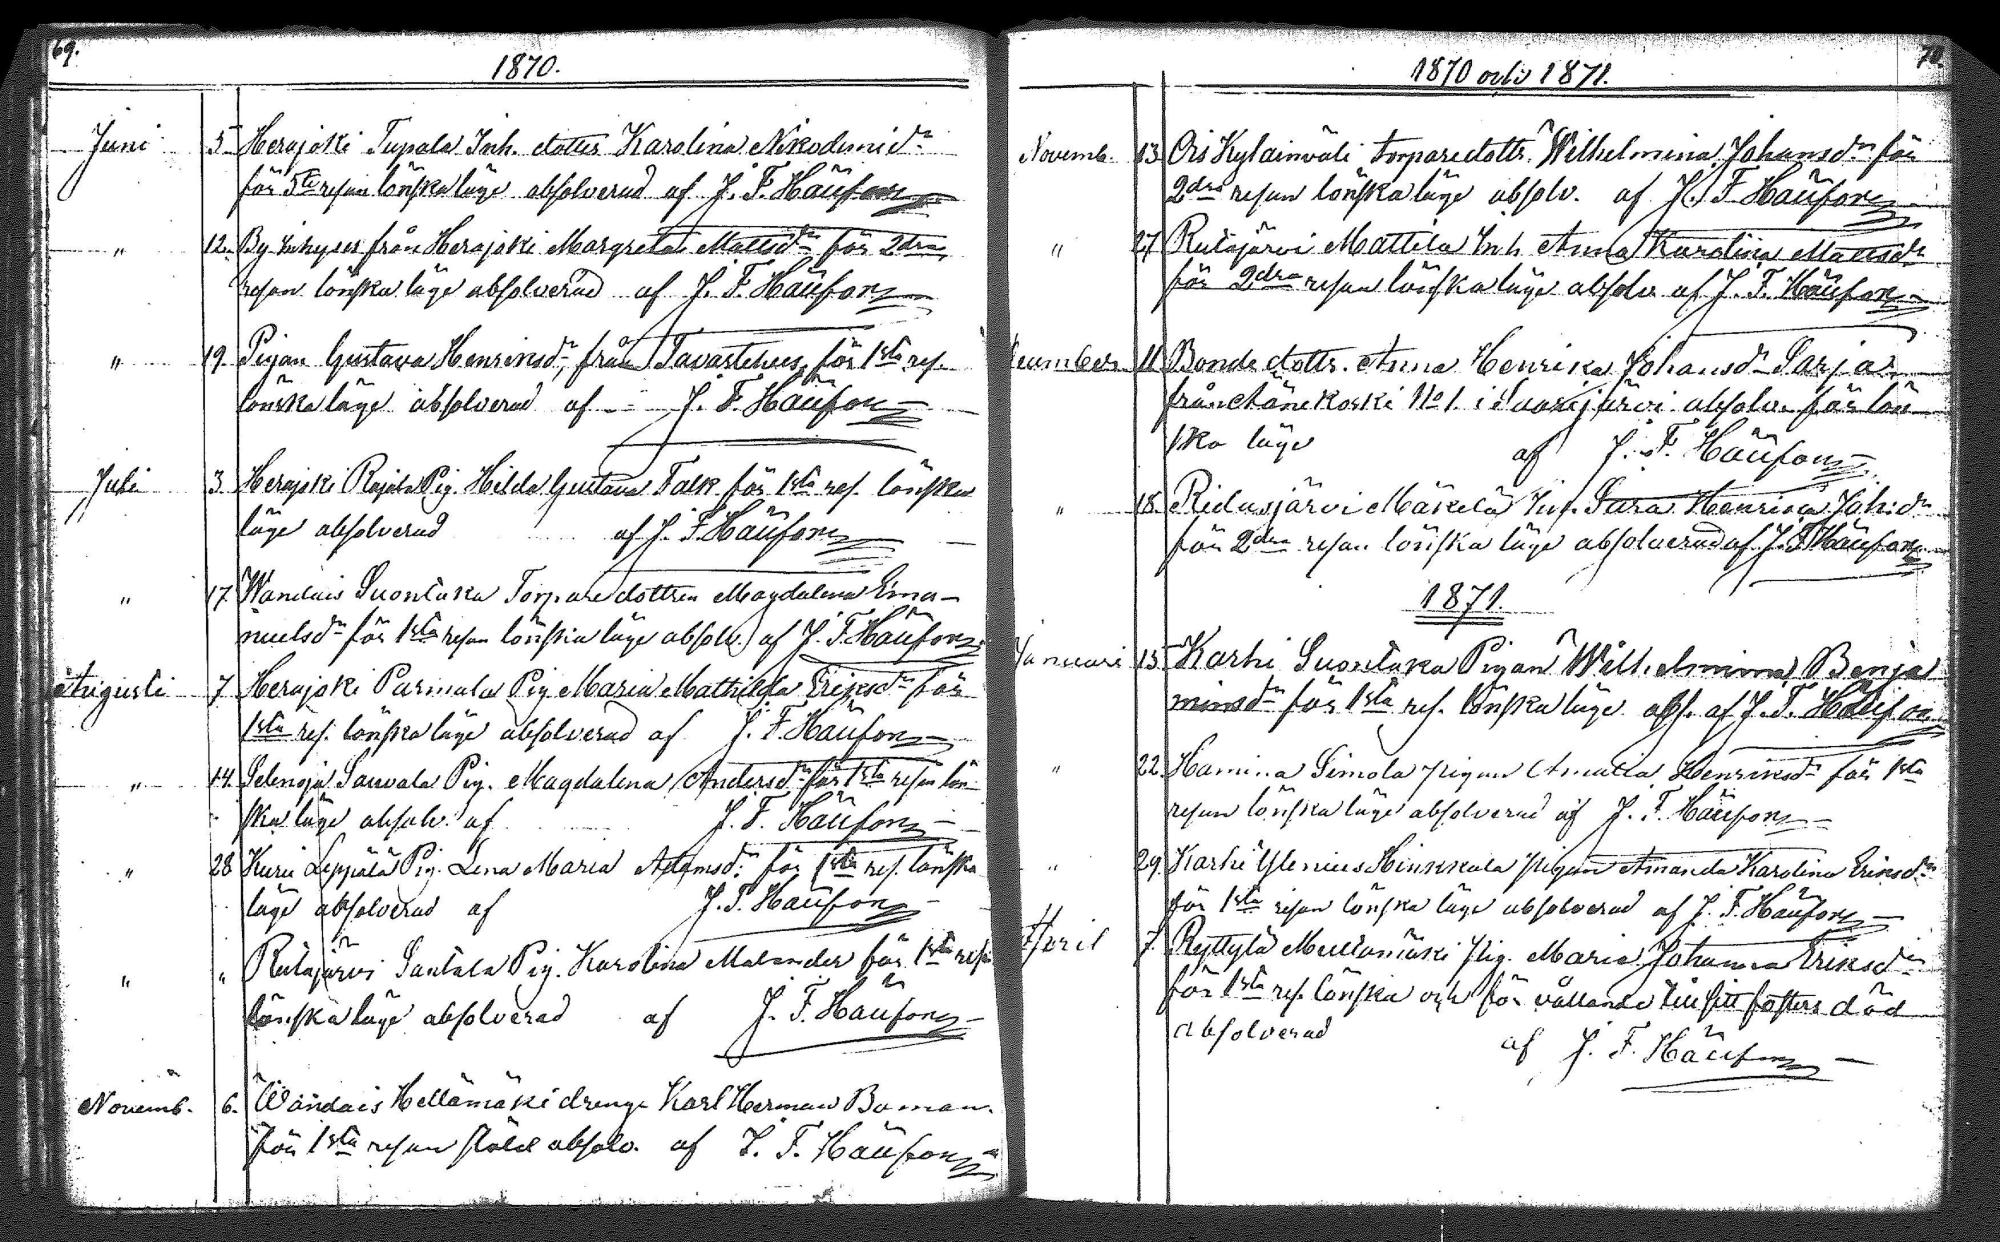 69.
1870.
Juni 5 Herajoki Tupala Inh. dotter Karolina Nikodemid:r
för 5te resan lönskaläge absolverad af J. F. Häufon
" 12. By Inhyses från Herajoki Margreta Mattsd:r för 2dra
resan lönska läge absolverad af J. F. Häufon
" 19. Pigan Gustava Henriksd:r, från Tavastehus, för 1sta res.
lönska läge absolverad af J. F. Häufon
Juli 3 Herajoki Rajala Pig. Hilda Gustava Falk för 1sta res. lönska
läge absolverad af J. F. Häufon
" 17. Wandais Suontaka Torpare dottren Magdalena Ema-
nuelsd:r för 1sta resan lönska läge absolv. af J. F. Häufon
Augusti 7 Herajoki Parmala Pig. Maria Mathilda Eriksd:r för
1sta res. lönska läge absolverad af J. F. Häufon
" 14. Selenoja Sauvala Pig. Magdalena Andersd:r för 1sta resan lön-
ska läge absolv. af J. F. Häufon
" 28 Kuru Leppälä Pig. Lena Maria Adamsd:r för 1sta res. lönska
läge absolverad af J. F. Häufon
" " Rutajärvi Santala Pig. Karolina Malander för 1sta resa
lönska läge absolverad af J. F. Häufon
Novemb. 6. Wandais Hellämäki drenge Karl Herman Boman
för 1sta resan stöld absolv. af J. F. Häufon
70.
1870 och 1871.
Novemb. 13 Ois Kylainväli torparedottr. Wilhelmina Johansd:r för
2dra resan lönska läge absolv. af J. F. Häufon
" 27 Rutajärvi Mattila Inh Anna Karolina Mattsd:r
för 2dra resan lönska läge absolv af J. F. Häufon
December 11 Bonde dottr. Anna Henrika Johansd:r Sarja
från Äänekoski No 1. i Saarijärvi absolv. för lön
ska läge af J. F. Häufon
" 18. Ridasjärvi Mäkelä Inh. Sara Henrica Johsd:r
för 2dra resan lönska läge absolverad af J. F. Häufon
1871.
Januari 15 Karhi Suontaka Pigan Wilhelmina Benja
minsd:r för 1sta res. lönska läge abs. af J. F. Häufon
" 22. Hamina Simola pigan Amalia Henriksd:r för 1sta
resan lönska läge absolverad af J. F. Häufon
" 29. Karhi Ylenius Hinkkala pigan Amanda Karolina Eriksd:r
för 1sta resan lönska läge absolverad af J. F. Häufon
April 7. Ryttylä Mullamäki pig. Maria Johanna Eriksd:r
för 1sta res. lönska och för vållande till sitt fosters död
absolverad af J. F. Häufon